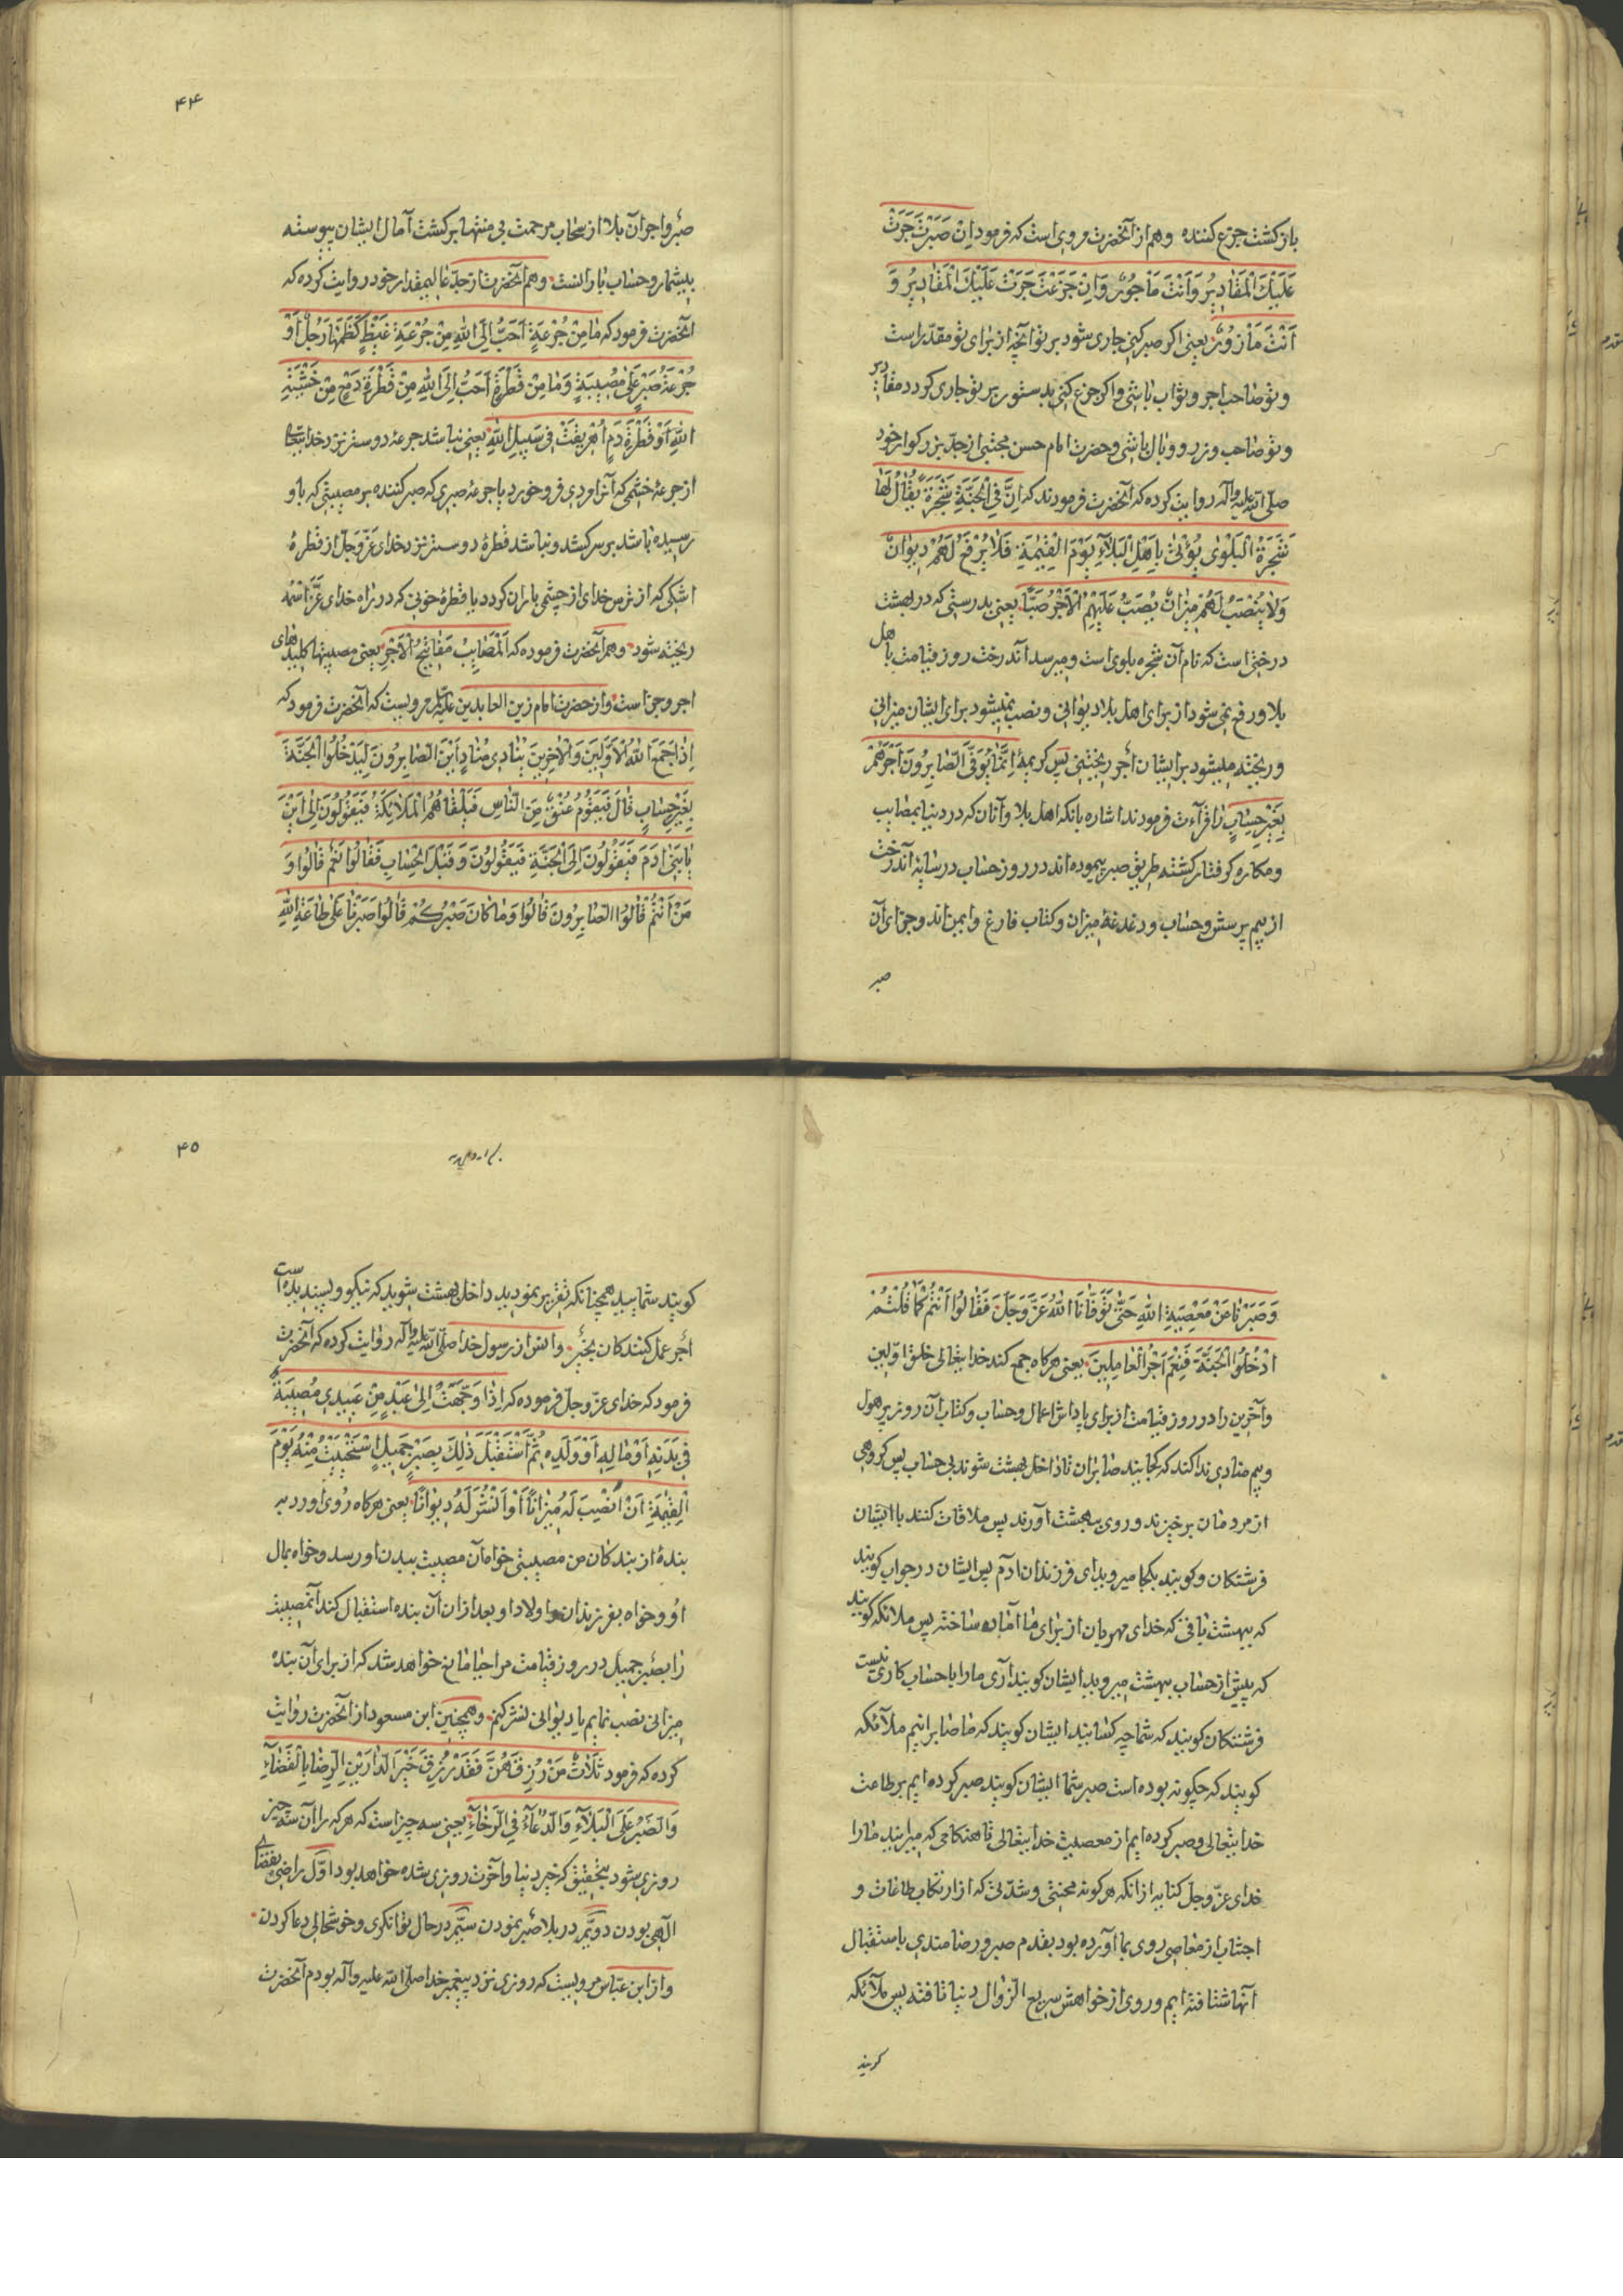 بازگشت جزع کننده وهم از آنحضرت مرویاست که فرمود اِنْ صَبَرْتَ جَرَتْ
عَلَیْكَ الْمَقٰادیرُ وَاَنْتَ مَأْجُورٌ وَاِنْ جَزَعْتَ جَرَتْ عَلَیْكَ الْمَقٰادیرُ وَ
اَنْتَ مَأْزُورٌ یعنی اگر صبر کنی جاری شود بر تو آنچه از برای تو مقدّر است
وتو صاحب اجر وثواب باشی واگر جزع کنی بدستور بر تو جاری گردد مقادیر
وتو صاحب وزر ووبال باشی وحضرت امام حسن مجتبی از جدّ بزرگوار خود
صلّی الله علیه وآله روایت کرده که آنحضرت فرمودند که اِنَّ فِی الْجَنَّةِ شَجَرَةً یُقٰالُ لَهٰا
شَجَرَةُ الْبَلْویٰ یُؤْتیٰ بِاَهْلِ الْبَلٰآءِ یَوْمَ الْقِیٰمَةِ فَلٰا یُرْفَعُ لَهُمْ دیوٰانٌ
وَلٰا یُنْصَبُ لَهُمْ میزٰانٌ یُصَبُّ عَلَیْهِمُ الْاَجْرُ صَبًّا یعنی بدرستی که در بهشت
درختی است که نام آن شجره بلوی است ومیرسد آندرخت روز قیامت باهل
بلا ورفع نمی شود از برای اهل بلا دیوانی ونصب نمیشود برای ایشان میزانی
وریخته میشود بر ایشان أجر ریختنی پس کریمهٔ اِنَّمٰا یُوَفَّی الصّٰابِرُونَ اَجْرَهُمْ
بِغَیْرِ حِسٰابٍ را قرآءت فرمودند اشاره بانکه اهل بلا وآنان که در دنیا بمصایب
ومکاره گرفتار گشته طریق صبر پیموده اند در روز حساب در سایهٔ آندرخت
از بیم پرسش وحساب ودغدغهٔ میزان وکتاب فارغ وایمن اند وجزای آن
صبر
۴۴
صبر واجر آن بلا از سحاب مرحمت بی منتها بر کشت آمال ایشان پیوسته
بیشمار وحساب بارانست وهم آنحضرت از جدّ عالیمقدار خود روایت کرده که
آنحضرت فرمود که مٰا مِنْ جُرْعَةٍ اَحَبُّ اِلَی اللهِ مِنْ جُرْعَةِ غَیْظٍ کَظَمَهٰا رَجُلٌ اَوْ
جُرْعَةُ صَبْرٍ عَلیٰ مُصیبَةٍ وَمٰا مِنْ قَطْرَةٍ اَحَبُّ اِلَی اللهِ مِنْ قَطْرَةِ دَمْعٍ مِنْ خَشْیَةِ
اللهِ اَوْ قَطْرَةِ دَمٍ اُهْریقَتْ فی سَبیلِ اللهِ یعنی نباشد جرعهٔ دوستر نزد خدایتعالی
از جرعهٔ خشمی که آنرا مردی فرو خورد یا جرعهٔ صبری که صبر کننده بر مصیبتی که باو
رسیده باشد بر سر کشد ونباشد قطرهٔ دوستر نزد خدای عزّ وجلّ از قطرهٔ
اشکی که از ترس خدای از چشمی باران گردد یا قطرهٔ خونی که در راه خدای عَزَّ اسْمُهُ
ریخته شود وهم آنحضرت فرموده که اَلْمَصٰایِبُ مَفٰاتیحُ الْاَجْرِ یعنی مصیبتها کلیدهای
اجر وجزاست واز حضرت امام زین العابدین علیه السّلام مرویست که آنحضرت فرمود که
اِذٰا جَمَعَ اللهُ الْاَوَّلینَ وَالْاٰخِرینَ یُنٰادی مُنٰادٍ اَیْنَ الصّٰابِرُونَ لِیَدْخُلُوا الْجَنَّةَ
بِغَیْرِ حِسٰابٍ قٰالَ فَیَقُومُ عُنُقٌ مِنَ النّٰاسِ فَیَلْقٰاهُمُ الْمَلٰایِکَةُ فَیَقُولُونَ اِلیٰ اَیْنَ
یٰا بَنی اٰدَمَ فَیَقُولُونَ اِلَی الْجَنَّةِ فَیَقُولُونَ وَقَبْلَ الْحِسٰابِ فَقٰالُوا نَعَمْ قٰالُوا وَ
مَنْ اَنْتُمْ قٰالُوا الصّٰابِرُونَ قٰالُوا وَمٰا کٰانَ صَبْرُکُمْ قٰالُوا صَبَرْنٰا عَلیٰ طٰاعَةِ اللهِ
وَصَبَرْنٰا مَنْ مَعْصِیَةِ اللهِ حَتّٰی تَوَفّٰانَا اللهُ عَزَّ وَجَلَّ فَقٰالُوا اَنْتُمْ کَمٰا قُلْتُمْ
اُدْخُلُوا الْجَنَّةَ فَنِعْمَ اَجْرُ الْعٰامِلینَ یعنی هرگاه جمع کند خدایتعالی خلق اوّلین
وآخرین را در روز قیامت از برای پاداش اعمال وحساب وکتاب آن روز پر هول
وبیم منادی ندا کند که کجایند صابران تا داخل بهشت شوند بی حساب پس گروهی
از مردمان برخیزند وروی به بهشت آورند پس ملاقات کنند با ایشان
فرشتگان وگویند بکجا میروید ای فرزندان ادم پس ایشان در جواب گویند
که ببهشت باقی که خدای مهربان از برای ما آماده ساخته پس ملائکه گویند
که پیش از حساب ببهشت میروید ایشان گویند آری ما را با حساب کاری نیست
فرشتگان گویند که شما چه کسانید ایشان گویند که ما صابرانیم ملآئکه
گویند که چگونه بوده است صبر شما ایشان گویند صبر کرده ایم بر طاعت
خدایتعالی وصبر کرده ایم از معصیت خدایتعالی تا هنگامی که میرانید ما را
خدای عزّ وجلّ کنایه از انکه هر گونه محنتی وشدّتی که از ارتکاب طاعات و
اجتناب از معاصی روی بما آورده بود بقدم صبر ورضامندی باستقبال
آنها شتافته ایم وروی از خواهش سریع الزّوال دنیا تافته پس ملآئکه
گویند
۴۵
گویند شمایید همچنانکه تقریر نمودید داخل بهشت شوید که نیکو وپسندیده است
أجر عمل کنندگان بخیر وانس از رسول خدا صلّی الله علیه وآله روایت کرده که آنحضرت
فرمود که خدای عزّ وجلّ فرموده که اِذٰا وَجَّهْتُ اِلیٰ عَبْدٍ مِنْ عَبیدی مُصیبَةً
فی بَدَنِهِ اَوْ مٰالِهِ اَوْ وَلَدِهِ ثُمَّ اسْتَقْبَلَ ذٰلِكَ بِصَبْرٍ جَمیلٍ اِسْتَحْیَیْتُ مِنْهُ یَوْمَ
الْقِیٰمَةِ اَنْ اُنْصِبَ لَهُ میزٰانًا اَوْ اَنْشُرَ لَهُ دیوٰانًا یعنی هرگاه رُوی آورد به
بندهٔ از بندگان من مصیبتی خواه آن مصیبت ببدن او رسد وخواه بمال
او وخواه بفرزندان واولاد او بعد ازان آن بنده استقبال کند آنمصیبت
را بصبر جمیل در روز قیامت مرا حیا مانع خواهد شد که از برای آن بنده
میزانی نصب نمایم یا دیوانی نشر کنم وهمچنین ابن مسعود از آنحضرت روایت
کرده که فرمود ثَلٰاثٌ مَنْ رُزِقَهُنَّ فَقَدْ رُزِقَ خَیْرَ الدّٰارَیْنِ اَلرِّضٰا بِالْقَضٰآءِ
وَالصَّبْرُ عَلَی الْبَلٰآءِ وَالدُّعٰآءُ فِی الرَّخٰآءِ یعنی سه چیز است که هر که را آن سه چیز
روزی شود بتحقیق که خیر دنیا وآخرت روزی شده خواهد بود اوّل راضی بقضای
الٓهی بودن دویّم در بلا صبر نمودن سیّم در حال توانگری وخوشحالی دعا کردن
واز ابن عبّاس مرویست که روزی نزد پیغمبر خدا صلّی الله علیه وآله بودم آنحضرت